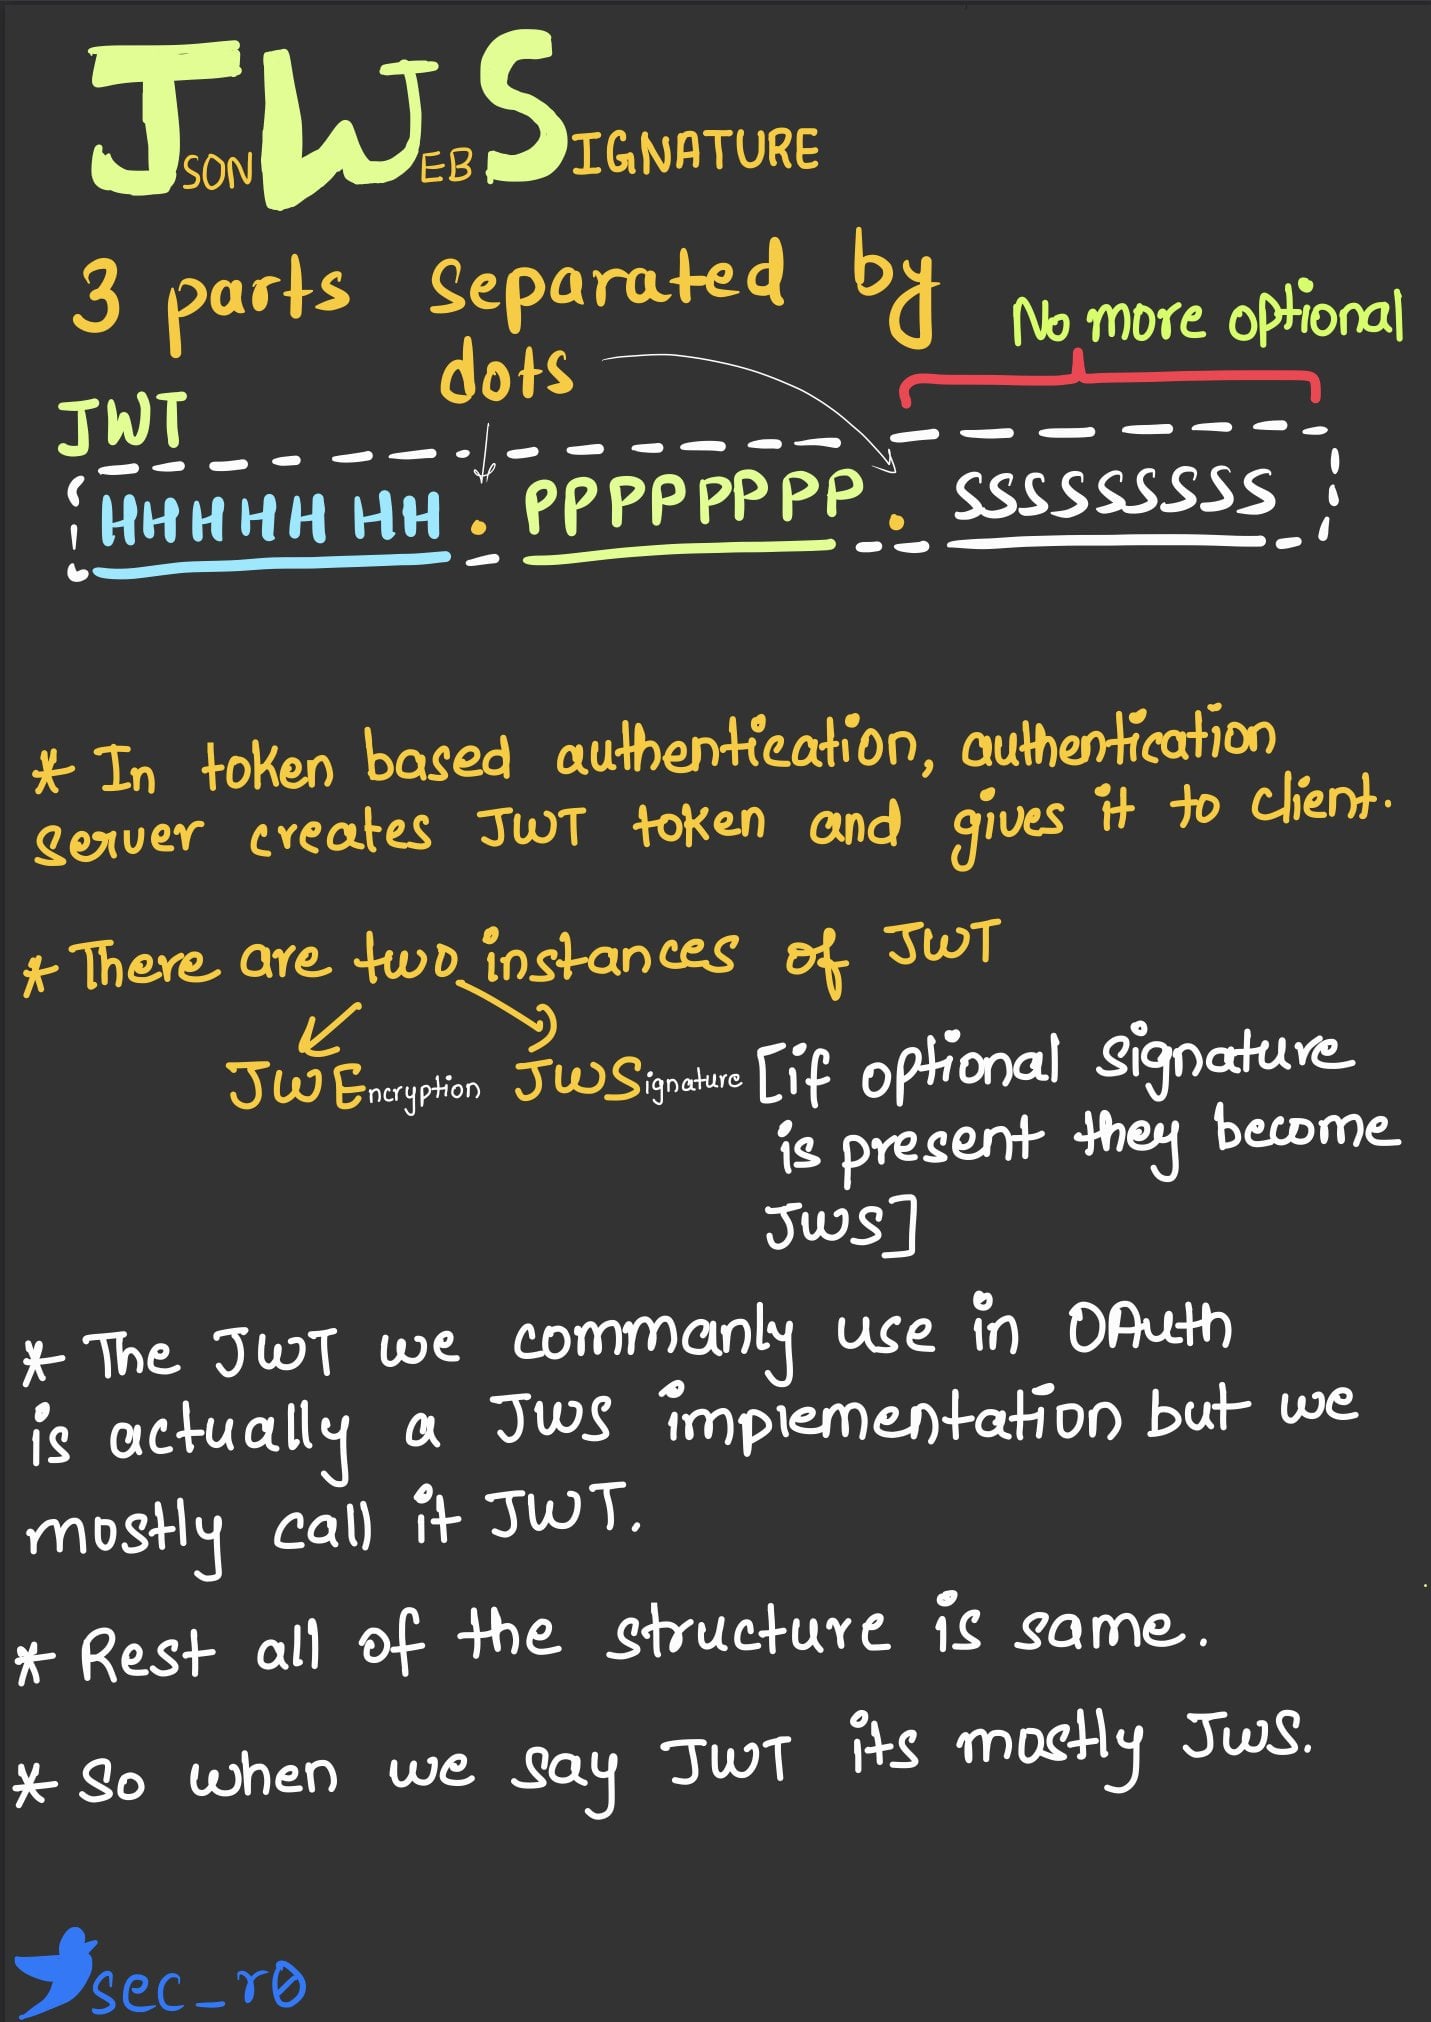 JSON WEB SIGNATURE
3 parts separated by
dots
No more optional
JWT
HHHHHHH . PPPPPPPP . SSSSSSSSS
* In token based authentication, authentication
server creates JWT token and gives it to client.
* There are two instances of JWT
JWEncryption JWSignature [if optional signature
is present they become
JWS]
* The JWT we commanly use in OAuth
is actually a JWS implementation but we
mostly call it JWT.
* Rest all of the structure is same.
* So when we say JWT its mostly JWS.
sec_r0